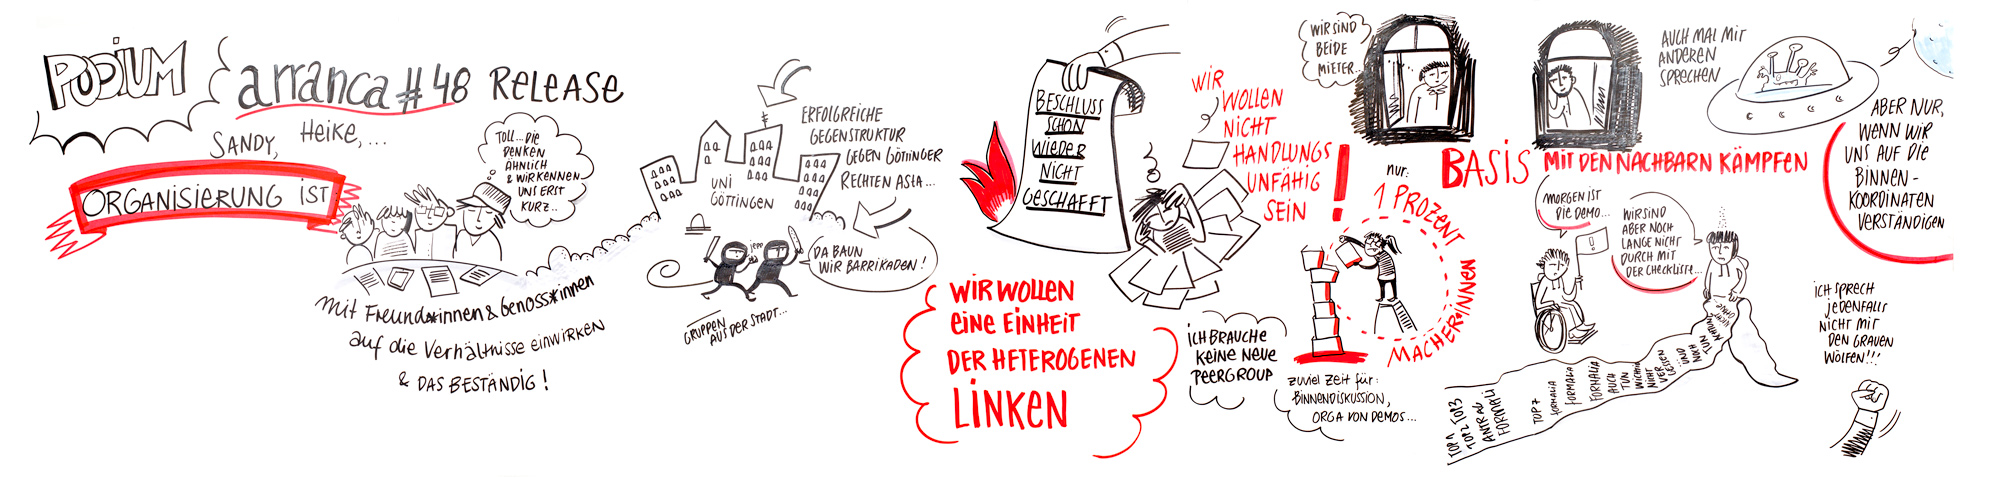 PODIUM
arranca #48 RELEASE
SANDY, HEIKE,...
ORGANISIERUNG IST
TOLL... DIE
DENKEN
ÄHNLICH
& WIR KENNEN
UNS ERST
KURZ..
mit Freund*innen & Genoss*innen
auf die Verhältnisse einwirken
& DAS BESTÄNDIG!
UNI
GÖTTINGEN
ERFOLGREICHE
GEGENSTRUKTUR
GEGEN GÖTTINGER
RECHTEN AStA...
jepp
DA BAUN
WIR BARRIKADEN!
GRUPPEN
AUS DER STADT...
BESCHLUSS
SCHON
WIEDER
NICHT
GESCHAFFT
WIR WOLLEN
EINE EINHEIT
DER HETEROGENEN
LINKEN
WIR
WOLLEN
NICHT
HANDLUNGS
UNFÄHIG
SEIN!
ICH BRAUCHE
KEINE NEUE
PEERGROUP
nur:
1 PROZENT
MACHER*INNEN
ZUVIEL ZEIT FÜR:
BINNENDISKUSSION,
ORGA VON DEMOS...
WIR SIND
BEIDE
MIETER..
BASIS MIT DEN NACHBARN KÄMPFEN
MORGEN IST
DIE DEMO...
!
WIR SIND
ABER NOCH
LANGE NICHT
DURCH MIT
DER CHECKLISTE...
TOP 1
TOP 2 TOP 3
ANTRAG
FORMALI
TOP 7
FORMALIA
FORMALIA
FORMALIA
AUCH
TUN
WICHTIG
NICHT
VERGESSEN
UND
NOCH
TUN
AUCH MAL MIT
ANDEREN
SPRECHEN
ABER NUR,
WENN WIR
UNS AUF DIE
BINNEN-
KOORDINATEN
VERSTÄNDIGEN
ICH SPRECH
JEDENFALLS
NICHT MIT
DEN GRAUEN
WÖLFEN!!!